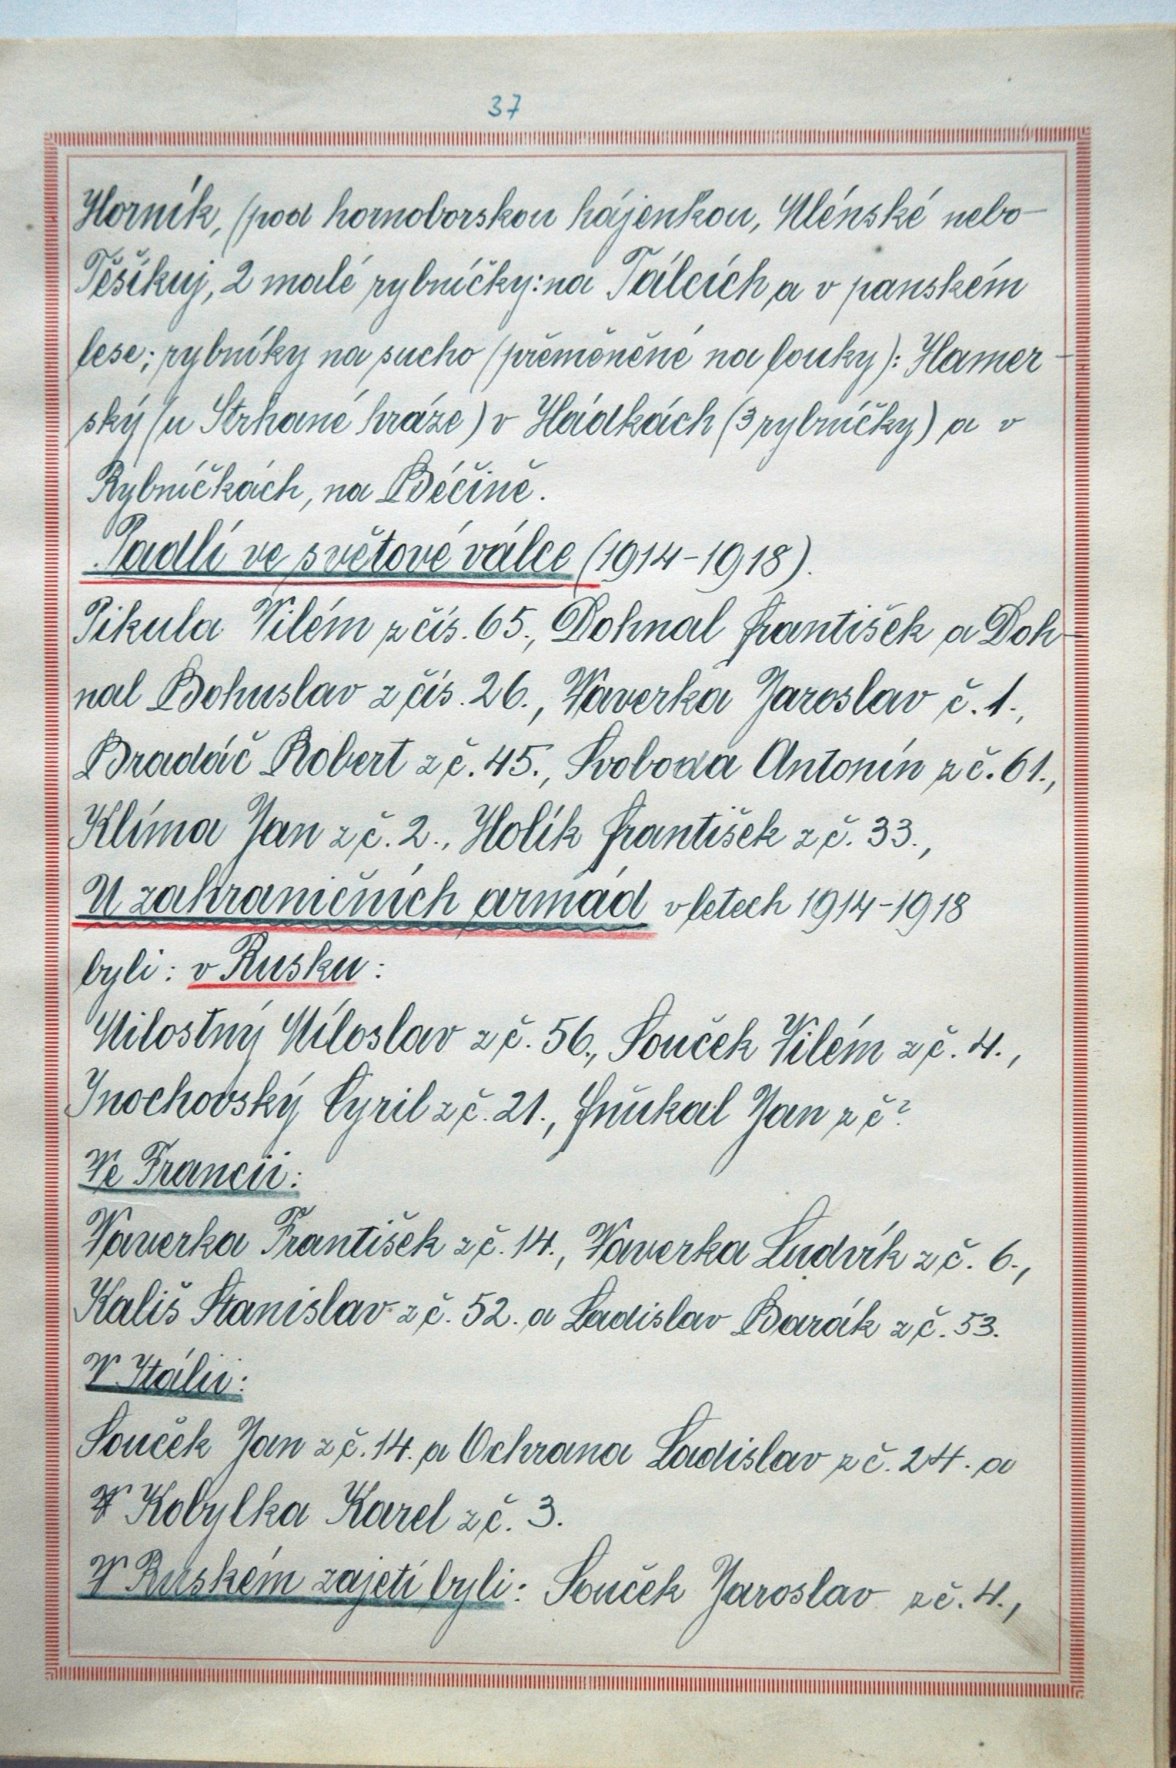 37
Horník, (pod hornoborskou hájenkou, Mlénské nebo
Těšíkuj, 2 malé rybníčky: na Tálcích a v panském
lese; rybníky na sucho (přeměněné na louky): Hamer-
ský (u Strhané hráze) v Hádkách (3 rybníčky) a v
Rybníčkách, na Béčině.
Padlí ve světové válce (1914-1918).
Pikula Vilém z čís. 65., Dohnal František a Doh-
nal Bohuslav z čís. 26., Vaverka Jaroslav č. 1.,
Bradáč Robert z č. 45., Svoboda Antonín z č. 61.,
Klíma Jan z č. 2., Holík František z č. 33.,
U zahraničních armád v letech 1914-1918
byli: v Rusku:
Milostný Miloslav z č. 56., Souček Vilém z č. 4.,
Inochovský Cyril z č. 21., Fňukal Jan z č?
Ve Francii:
Vaverka František z č. 14., Vaverka Ludvík z č. 6.,
Kališ Stanislav z č. 52. a Ladislav Barák z č. 53.
V Itálii:
Souček Jan z č. 14. a Ochrana Ladislav z č. 24. a
V Kobylka Karel z č. 3.
V Ruském zajetí byli: Souček Jaroslav z č. 4.,